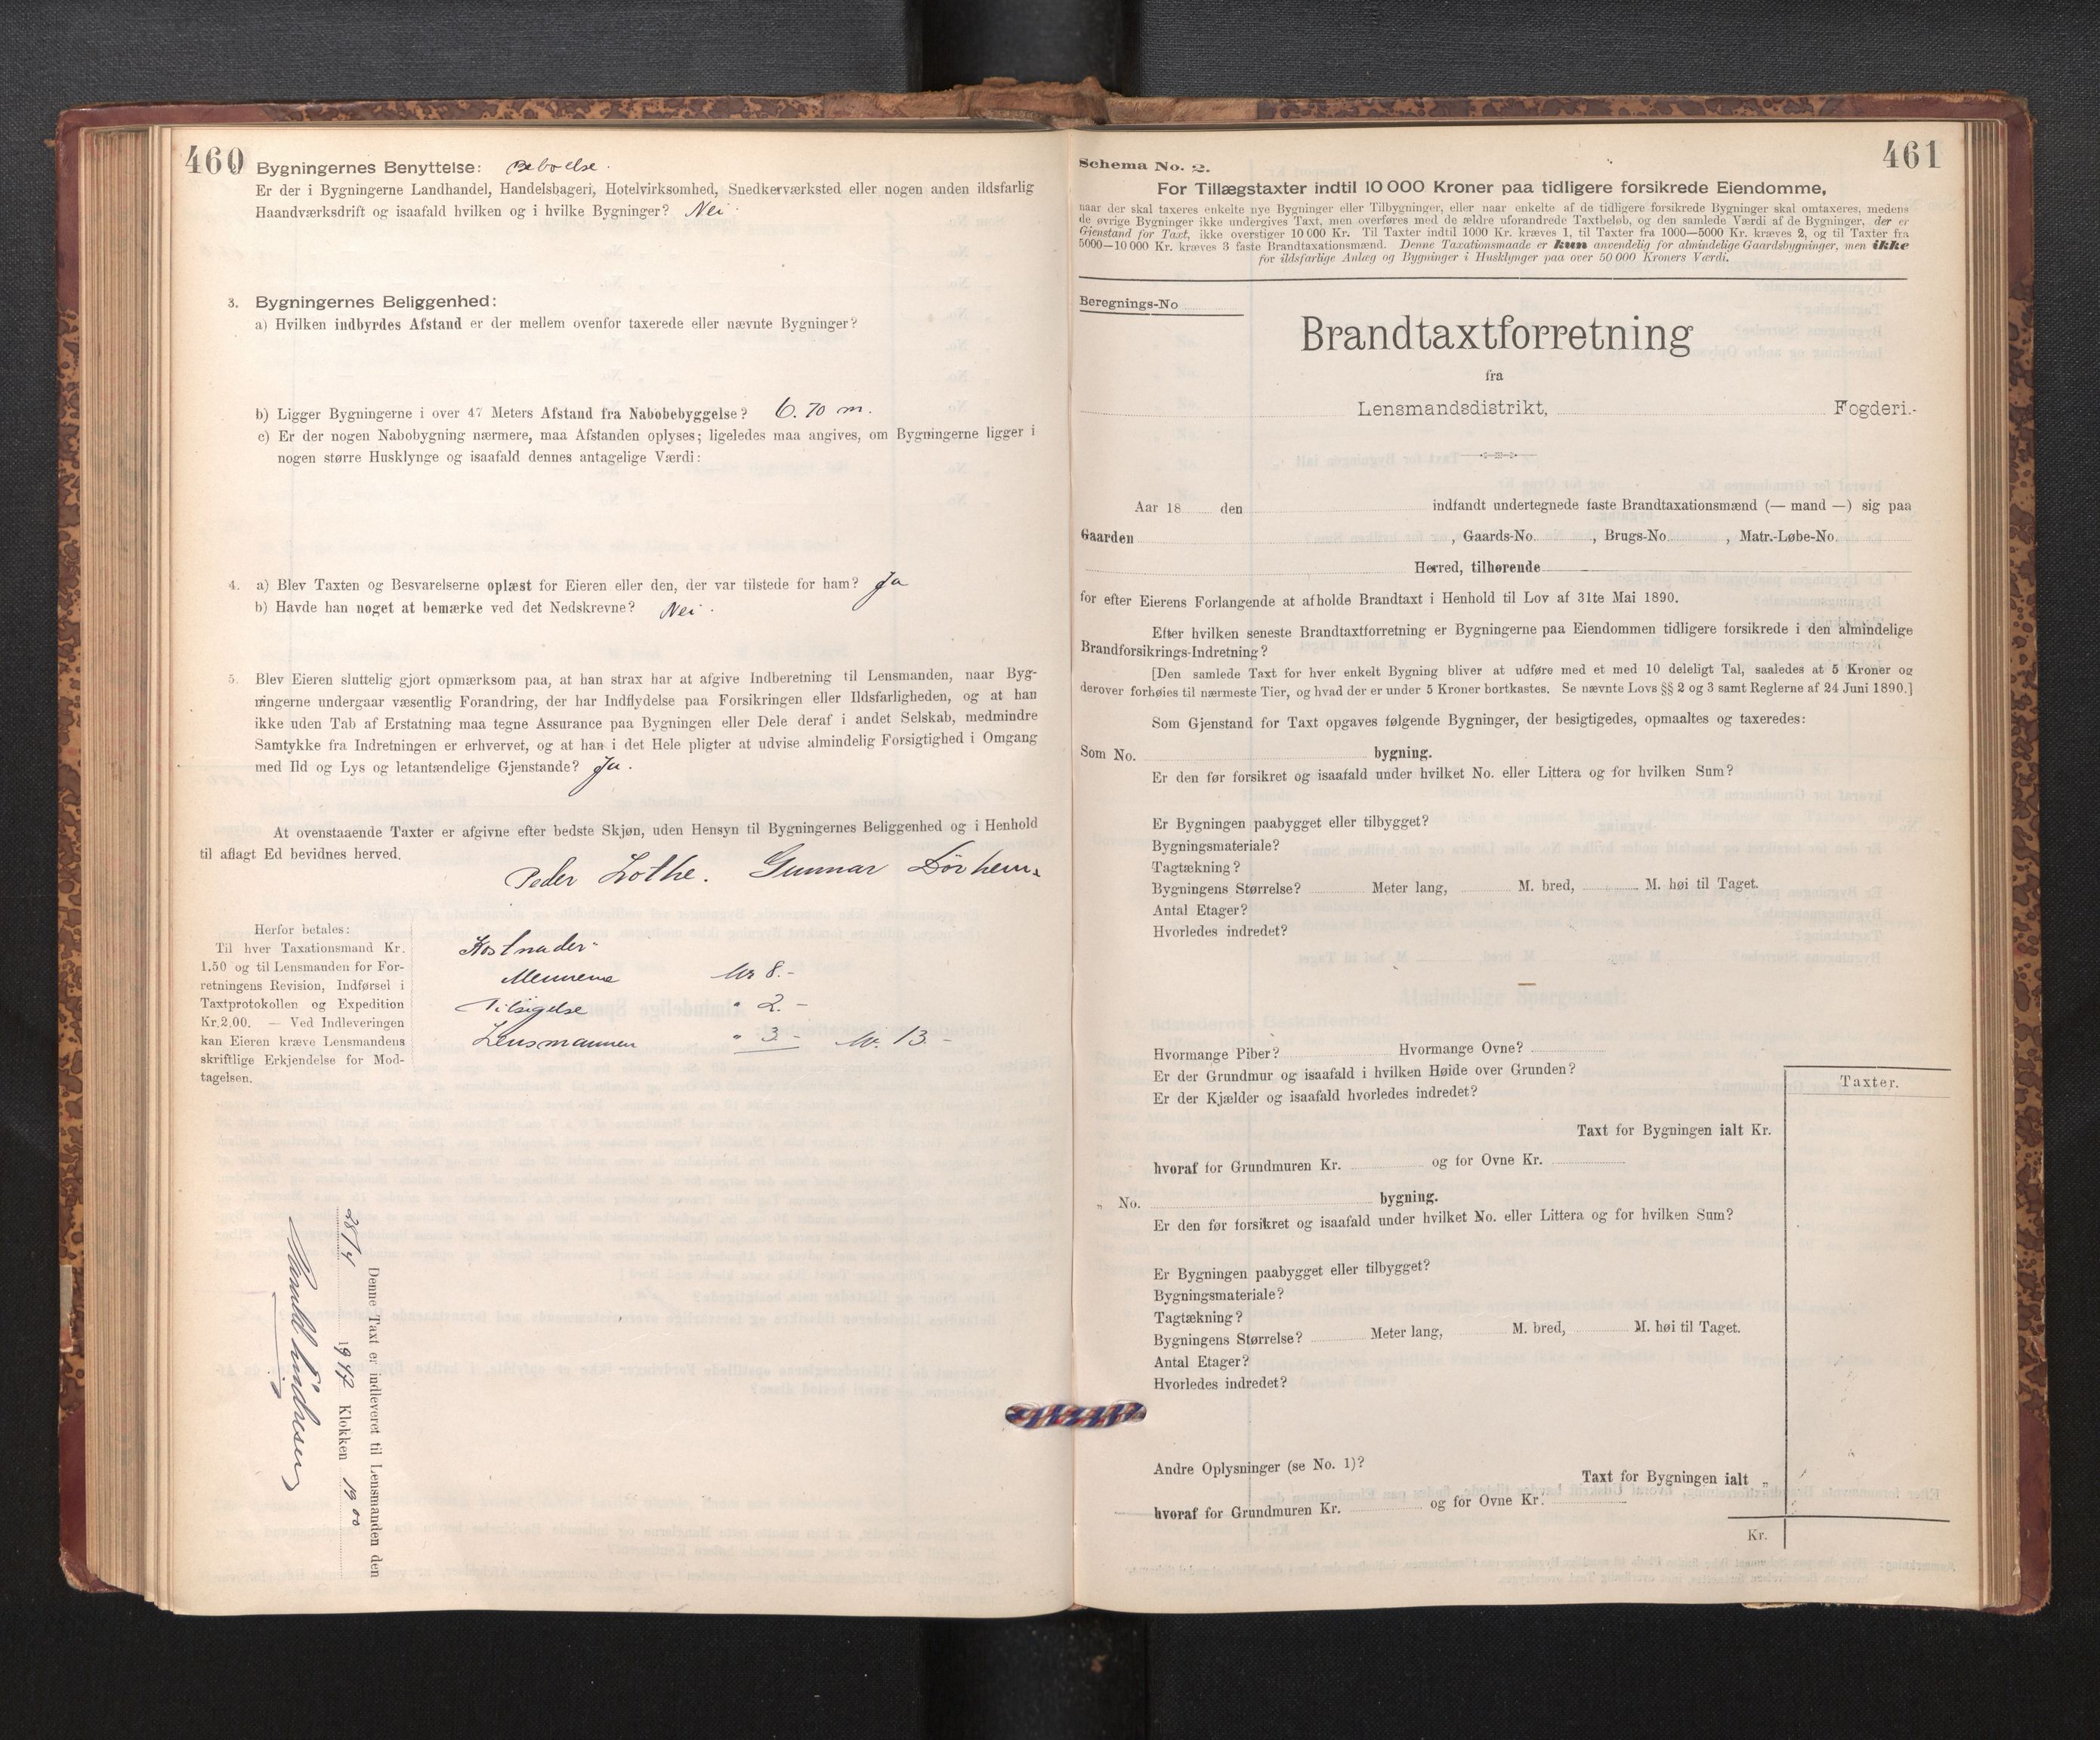 460
Bygningernes Benyttelse: Beboelse.
Er der i Bygningerne Landhandel, Handelsbageri, Hotelvirksomhed, Snedkerværksted eller nogen anden ildsfarlig
Haandværksdrift og isaafald hvilken og i hvilke Bygninger? Nei.
3. Bygningernes Beliggenhed:
a) Hvilken indbyrdes Afstand er der mellem ovenfor taxerede eller nævnte Bygninger?
b) Ligger Bygningerne i over 47 Meters Afstand fra Nabobebyggelse? 6.70 m.
c) Er der nogen Nabobygning nærmere, maa Afstanden oplyses; ligeledes maa angives, om Bygningerne ligger i
nogen større Husklynge og isaafald dennes antagelige Værdi:
4. a) Blev Taxten og Besvarelserne oplæst for Eieren eller den, der var tilstede for ham? Ja
b) Havde han noget at bemærke ved det Nedskrevne? Nei.
5. Blev Eieren sluttelig gjort opmærksom paa, at han strax har at afgive Indberetning til Lensmanden, naar Byg-
ningerne undergaar væsentlig Forandring, der har Indflydelse paa Forsikringen eller Ildsfarligheden, og at han
ikke uden Tab af Erstatning maa tegne Assurance paa Bygningen eller Dele deraf i andet Selskab, medmindre
Samtykke fra Indretningen er erhvervet, og at han i det Hele pligter at udvise almindelig Forsigtighed i Omgang
med Ild og Lys og letantændelige Gjenstande? Ja.
At ovenstaaende Taxter er afgivne efter bedste Skjøn, uden Hensyn til Bygningernes Beliggenhed og i Henhold
til aflagt Ed bevidnes herved.
Peder Lothe. Gunnar
Herfor betales:
Til hver Taxationsmand Kr.
1.50 og til Lensmanden for For-
retningens Revision, Indførsel i
Taxtprotokollen og Expedition
Kr. 2,00. — Ved Indleveringen
kan Eieren kræve Lensmandens
skriftlige Erkjendelse for Mod-
tagelsen.
Kostnader
Mennene kr 8.-
Tilsigelse " 2.-
Lensmannen " 3.- kr. 13.-
Denne Taxt er indleveret til Lensmanden den
28/4 1942 Klokken 19 00
461
Schema No. 2.
For Tillægstaxter indtil 10 000 Kroner paa tidligere forsikrede Eiendomme,
naar der skal taxeres enkelte nye Bygninger eller Tilbygninger, eller naar enkelte af de tidligere forsikrede Bygninger skal omtaxeres, medens
de øvrige Bygninger ikke undergives Taxt, men overføres med de ældre uforandrede Taxtbeløb, og den samlede Værdi af de Bygninger, der er
Gjenstand for Taxt, ikke overstiger 10 000 Kr. Til Taxter indtil 1000 Kr. kræves 1, til Taxter fra 1000—5000 Kr. kræves 2, og til Taxter fra
5000—10 000 Kr. kræves 3 faste Brandtaxationsmænd. Denne Taxationsmaade er kun anvendelig for almindelige Gaardsbygninger, men ikke
for ildsfarlige Anlæg og Bygninger i Husklynger paa over 50 000 Kroners Værdi.
Beregnings-No
Brandtaxtforretning
fra
Lensmandsdistrikt, Fogderi.
Aar 18 den indfandt undertegnede faste Brandtaxationsmænd (— mand —) sig paa
Gaarden , Gaards-No. , Brugs-No. , Matr.-Løbe-No.
Herred, tilhørende
for efter Eierens Forlangende at afholde Brandtaxt i Henhold til Lov af 31te Mai 1890.
Efter hvilken seneste Brandtaxtforretning er Bygningerne paa Eiendommen tidligere forsikrede i den almindelige
Brandforsikrings-Indretning?
[Den samlede Taxt for hver enkelt Bygning bliver at udføre med et med 10 deleligt Tal, saaledes at 5 Kroner og
derover forhøies til nærmeste Tier, og hvad der er under 5 Kroner bortkastes. Se nævnte Lovs §§ 2 og 3 samt Reglerne af 24 Juni 1890.]
Som Gjenstand for Taxt opgaves følgende Bygninger, der besigtigedes, opmaaltes og taxeredes:
Som No. bygning.
Er den før forsikret og isaafald under hvilket No. eller Littera og for hvilken Sum?
Er Bygningen paabygget eller tilbygget?
Bygningsmateriale?
Tagtækning?
Bygningens Størrelse? Meter lang, M. bred, M. høi til Taget.
Antal Etager?
Hvorledes indredet?
Hvormange Piber? Hvormange Ovne?
Er der Grundmur og isaafald i hvilken Høide over Grunden?
Er der Kjælder og isaafald hvorledes indredet?
Taxter.
Taxt for Bygningen ialt Kr.
hvoraf for Grundmuren Kr. og for Ovne Kr.
„ No. bygning.
Er den før forsikret og isaafald under hvilket No. eller Littera og for hvilken Sum?
Er Bygningen paabygget eller tilbygget?
Bygningsmateriale?
Tagtækning?
Bygningens Størrelse? Meter lang, M. bred, M. høi til Taget.
Antal Etager?
Hvorledes indredet?
Andre Oplysninger (se No. 1)?
Taxt for Bygningen ialt „
hvoraf for Grundmuren Kr. og for Ovne Kr.
Kr.